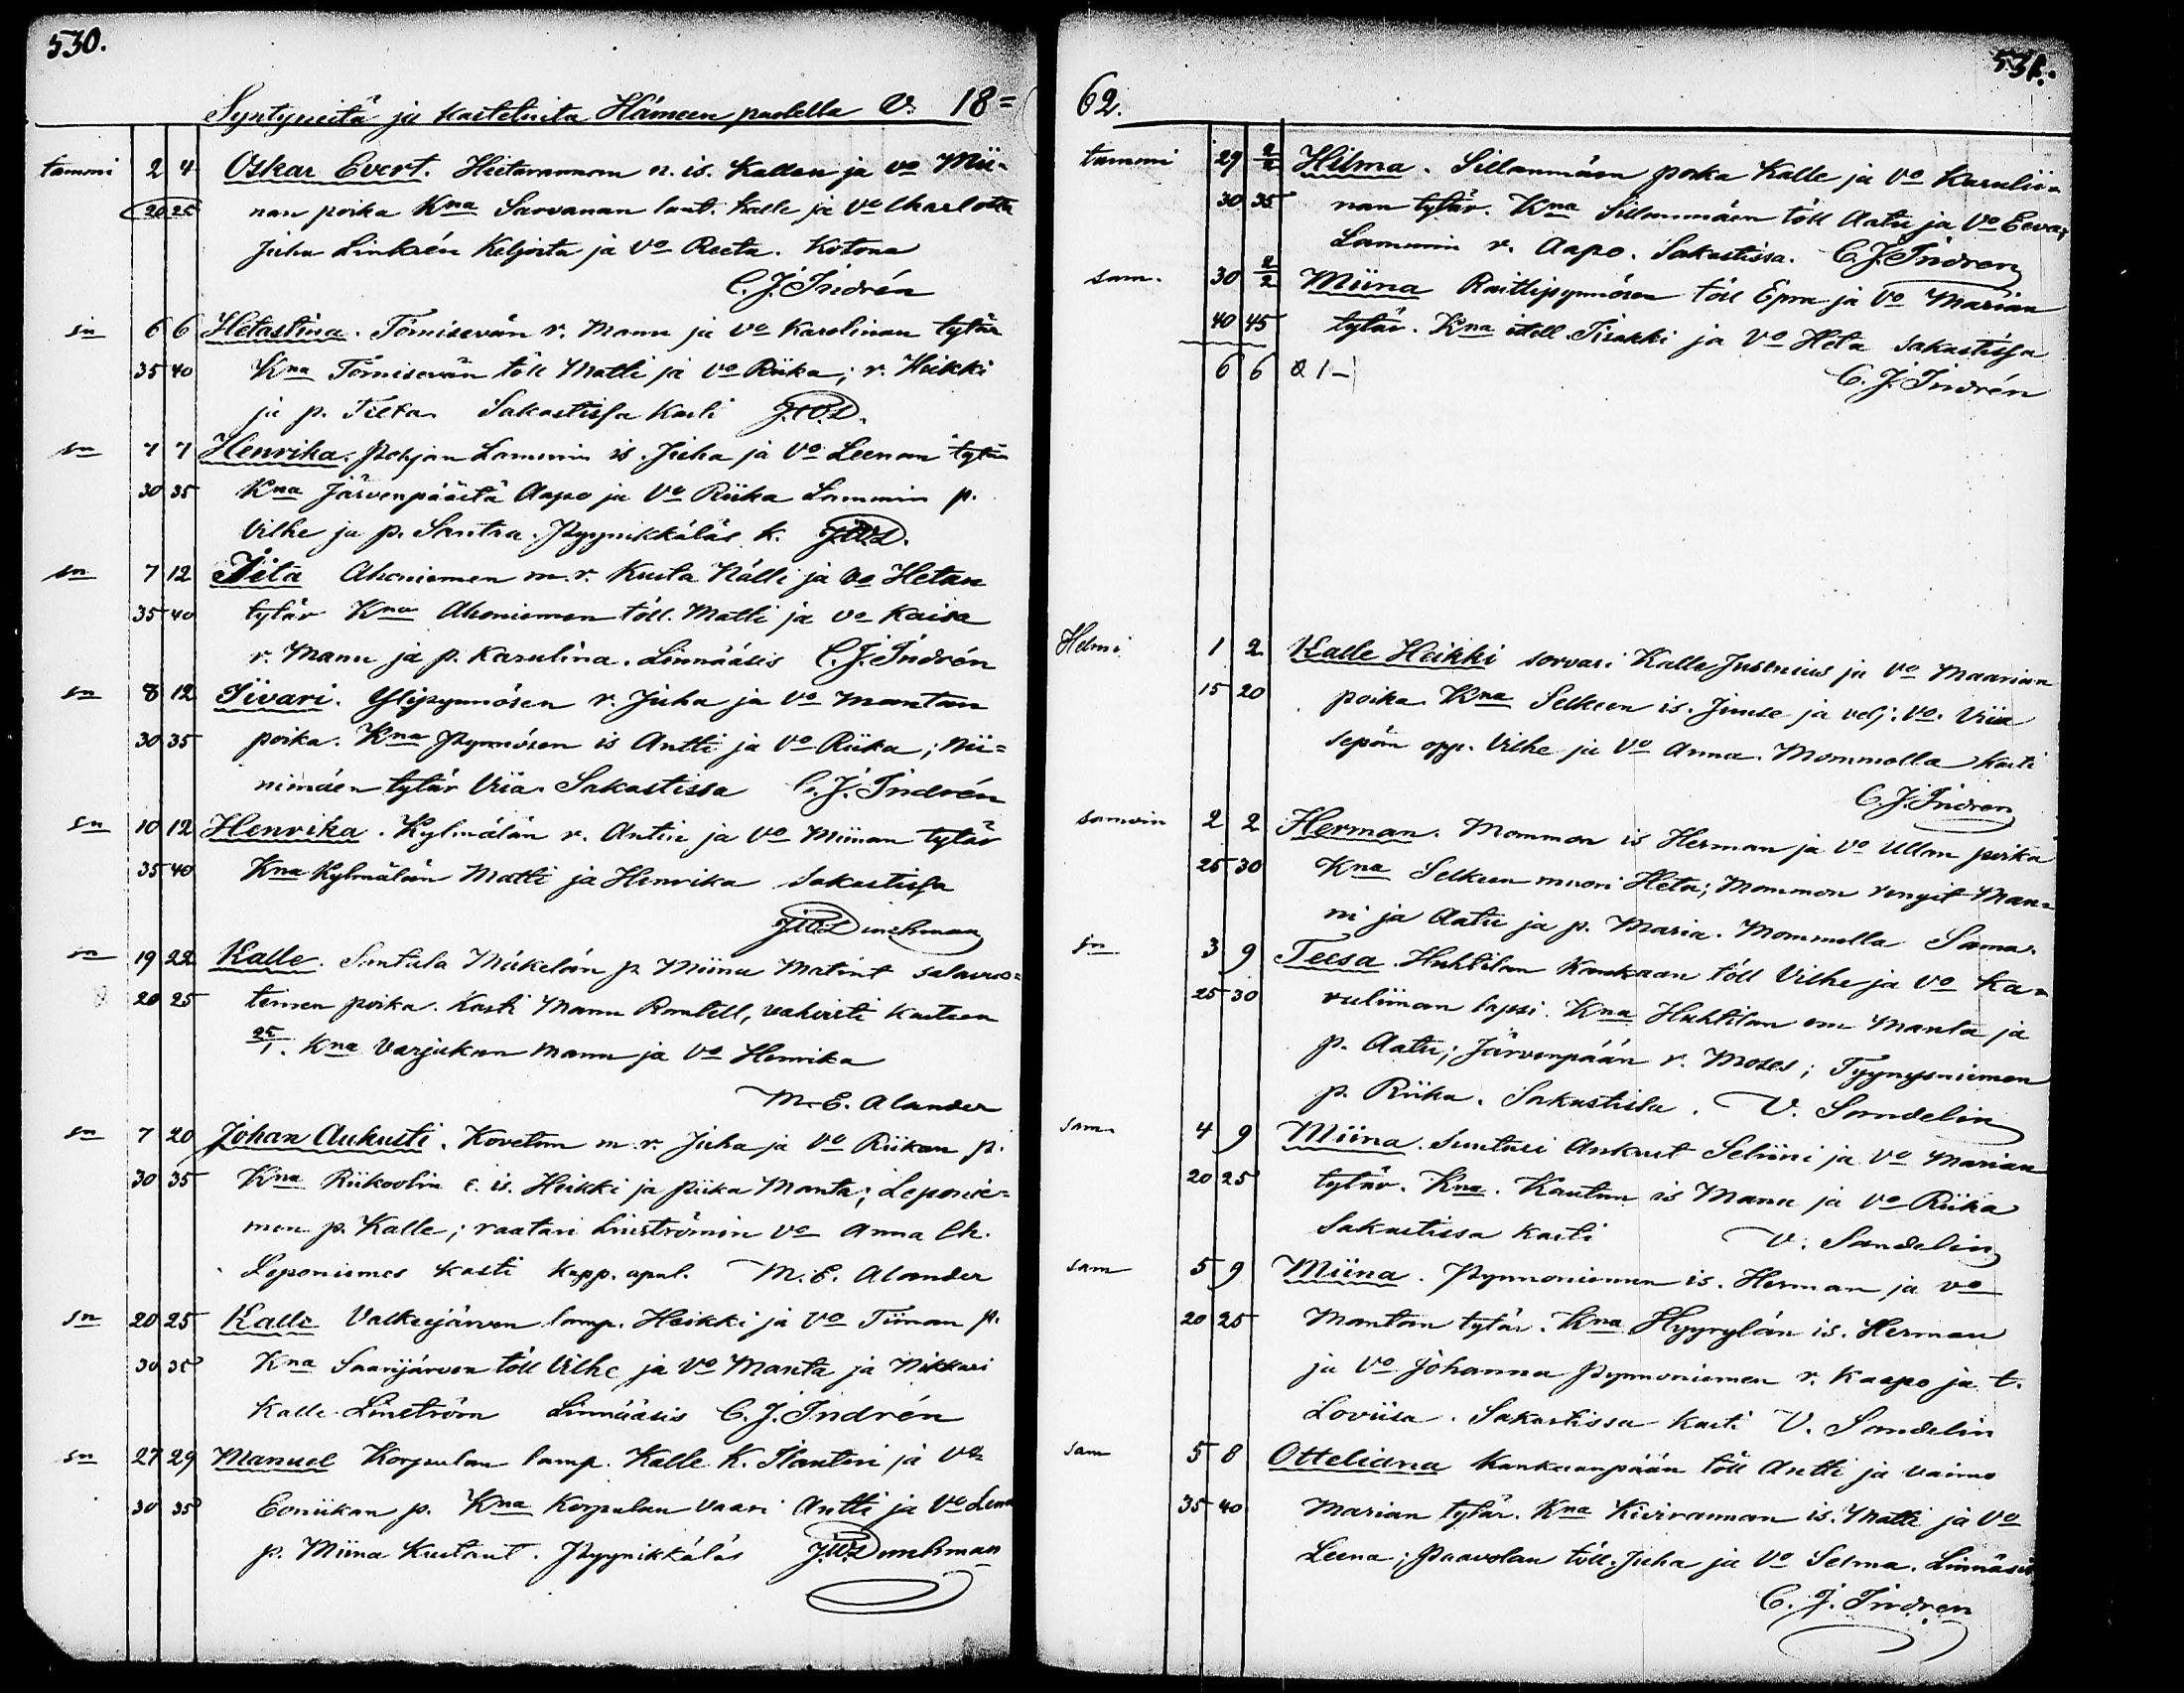 530.
Syntyneitä ja kastetuita Hämeen puolella V. 18=
tammi 2 4 Oskar Evert. Hietarannan n. is. Kallen ja vo Mii=
20 25 nan poika Kna Sarvanan laut. Kalle ja Vo Charlotta
Juha Linksén Keljosta ja Vo Reeta. Kotona
C. J. Indrén
sn 6 6 Hetastina. Törnisevän r. Manu ja vo Karolinan tytär
35 40 Kna Törnisevän töll Matti ja vo Riika; r. Heikki
ja p. Tilta. Sakastissa kasti
sn 7 7 Henrika. Pohjan Lammin is. Juha ja Vo Leenan tytär
30 35 Kna Järvenpäästä Aapo ja Vo Riika Lammin p.
Vilhe ja p. Santra. Pyynikkäläs k.
sn 7 12 Iita Ahoniemen m. r. Kusta Nälli ja vo Hetan
35 40 tytär Kna Ahoniemen töll. Matti ja vo Kaisa
r. Manu ja p. Karulina. Linnääsis C. J. Indrén
sn 8 12 Iivari. Ylipynnösen r. Juha ja Vo Mantan
30 35 poika. Kna Pynnösen is Antti ja Vo Riika; Nii=
nimäen tytär Viia. Sakastissa C. J. Indrén
sn 10 12 Henrika. Kylmälän r. Antin ja Vo Miinan tytär
35 40 Kna Kylmälän Matti ja Henrika Sakastissa
sn 19 22 Kalle. Suntala Mäkelän p. Miina Matint salavuo=
20 25 teinen poika. Kasti Manu Rantell, vahvisti kasteen
25/1. Kna Varjukan Manu ja Vo Henrika
M. E. Alander
sn 7 20 Johan Aukusti. Kovetun m. r. Juha ja Vo Riikan p.
30 35 Kna Riikoolin e. is. Heikki ja piika Manta; Leponie=
men p. Kalle; raatari Linströmin Vo Anna Ch.
Leponiemes kasti kapp. apul. M. E. Alander
sn 20 25 Kalle Valkeejärven lamp. Heikki ja Vo Tiinan p.
30 35 Kna Saarijärven töll Vilhe ja Vo Manta ja Nikkari
Kalle Linström Linnääsis C. J. Indrén
sn 27 29 Manuel Korpulan lamp. Kalle K. Ilantin ja Vo
30 35 Eeniikan p. Kna Korpulan vaari Antti ja Vo Lena
p. Miina Kustant. Pyynikkäläs
531.
62.
tammi 29 2/2 Hilma. Sillanmäen poika Kalle ja Vo Karulii=
30 35 nan tytär. Kna Sillanmäen töll Aatu ja Vo Eeva;
Lammin r. Aapo. Sakastissa. C. J. Indren
sam. 30 2/2 Miina Raittipynnösen töll Epra ja Vo Marian
40 45 tytär. Kna itell. Iisakki ja Vo Heta Sakastissa
6 6 & 1 - C. J. Indrén
Helmi 1 2 Kalle Heikki sorvari Kalle Jusenius ja Vo Maarian
15 20 poika. Kna Selkeen is. Juuse ja velj. Vo. Viia
sepän opp. Vilhe ja Vo Anna. Mommolla kasti
C. J. Indren
samoin 2 2 Herman. Mommon is Herman ja Vo Ullan poika
25 30 Kna Selkeen muori Heta; Mommon rengit Man=
ni ja Aatu ja p. Maria. Mommolla Sama.
sn 3 9 Teesa. Huhtilan Kankaan töll Vilhe ja Vo Ka=
25 30 ruliinan lapsi. Kna Huhtilan em Manta ja
p. Aatu; Järvenpään r. Moses; Tyynysniemen
p. Riika. Sakastissa. V. Sandelin
sam. 4 9 Miina. Suutari Aukust Seliini ja Vo Marian
20 25 tytär. Kna. Kautun is Manu ja Vo Riika
Sakastissa kasti V. Sandelin
sam 5 9 Miina. Pynnoniemen is. Herman ja vo
20 25 Mantan tytär. Kna Hyyrylän is. Herman
ja Vo Johanna Pynnoniemen r. Kaapo ja t.
Loviisa. Sakastissa kasti V. Sandelin
sam 5 8 Otteliana Kankaanpään töll Antti ja vaimo
35 40 Marian tytär. Kna Kivirannan is. Matti ja Vo
Leena; Paavolan töll. Juha ja Vo Selma. Linnäsis
C. J. Indren